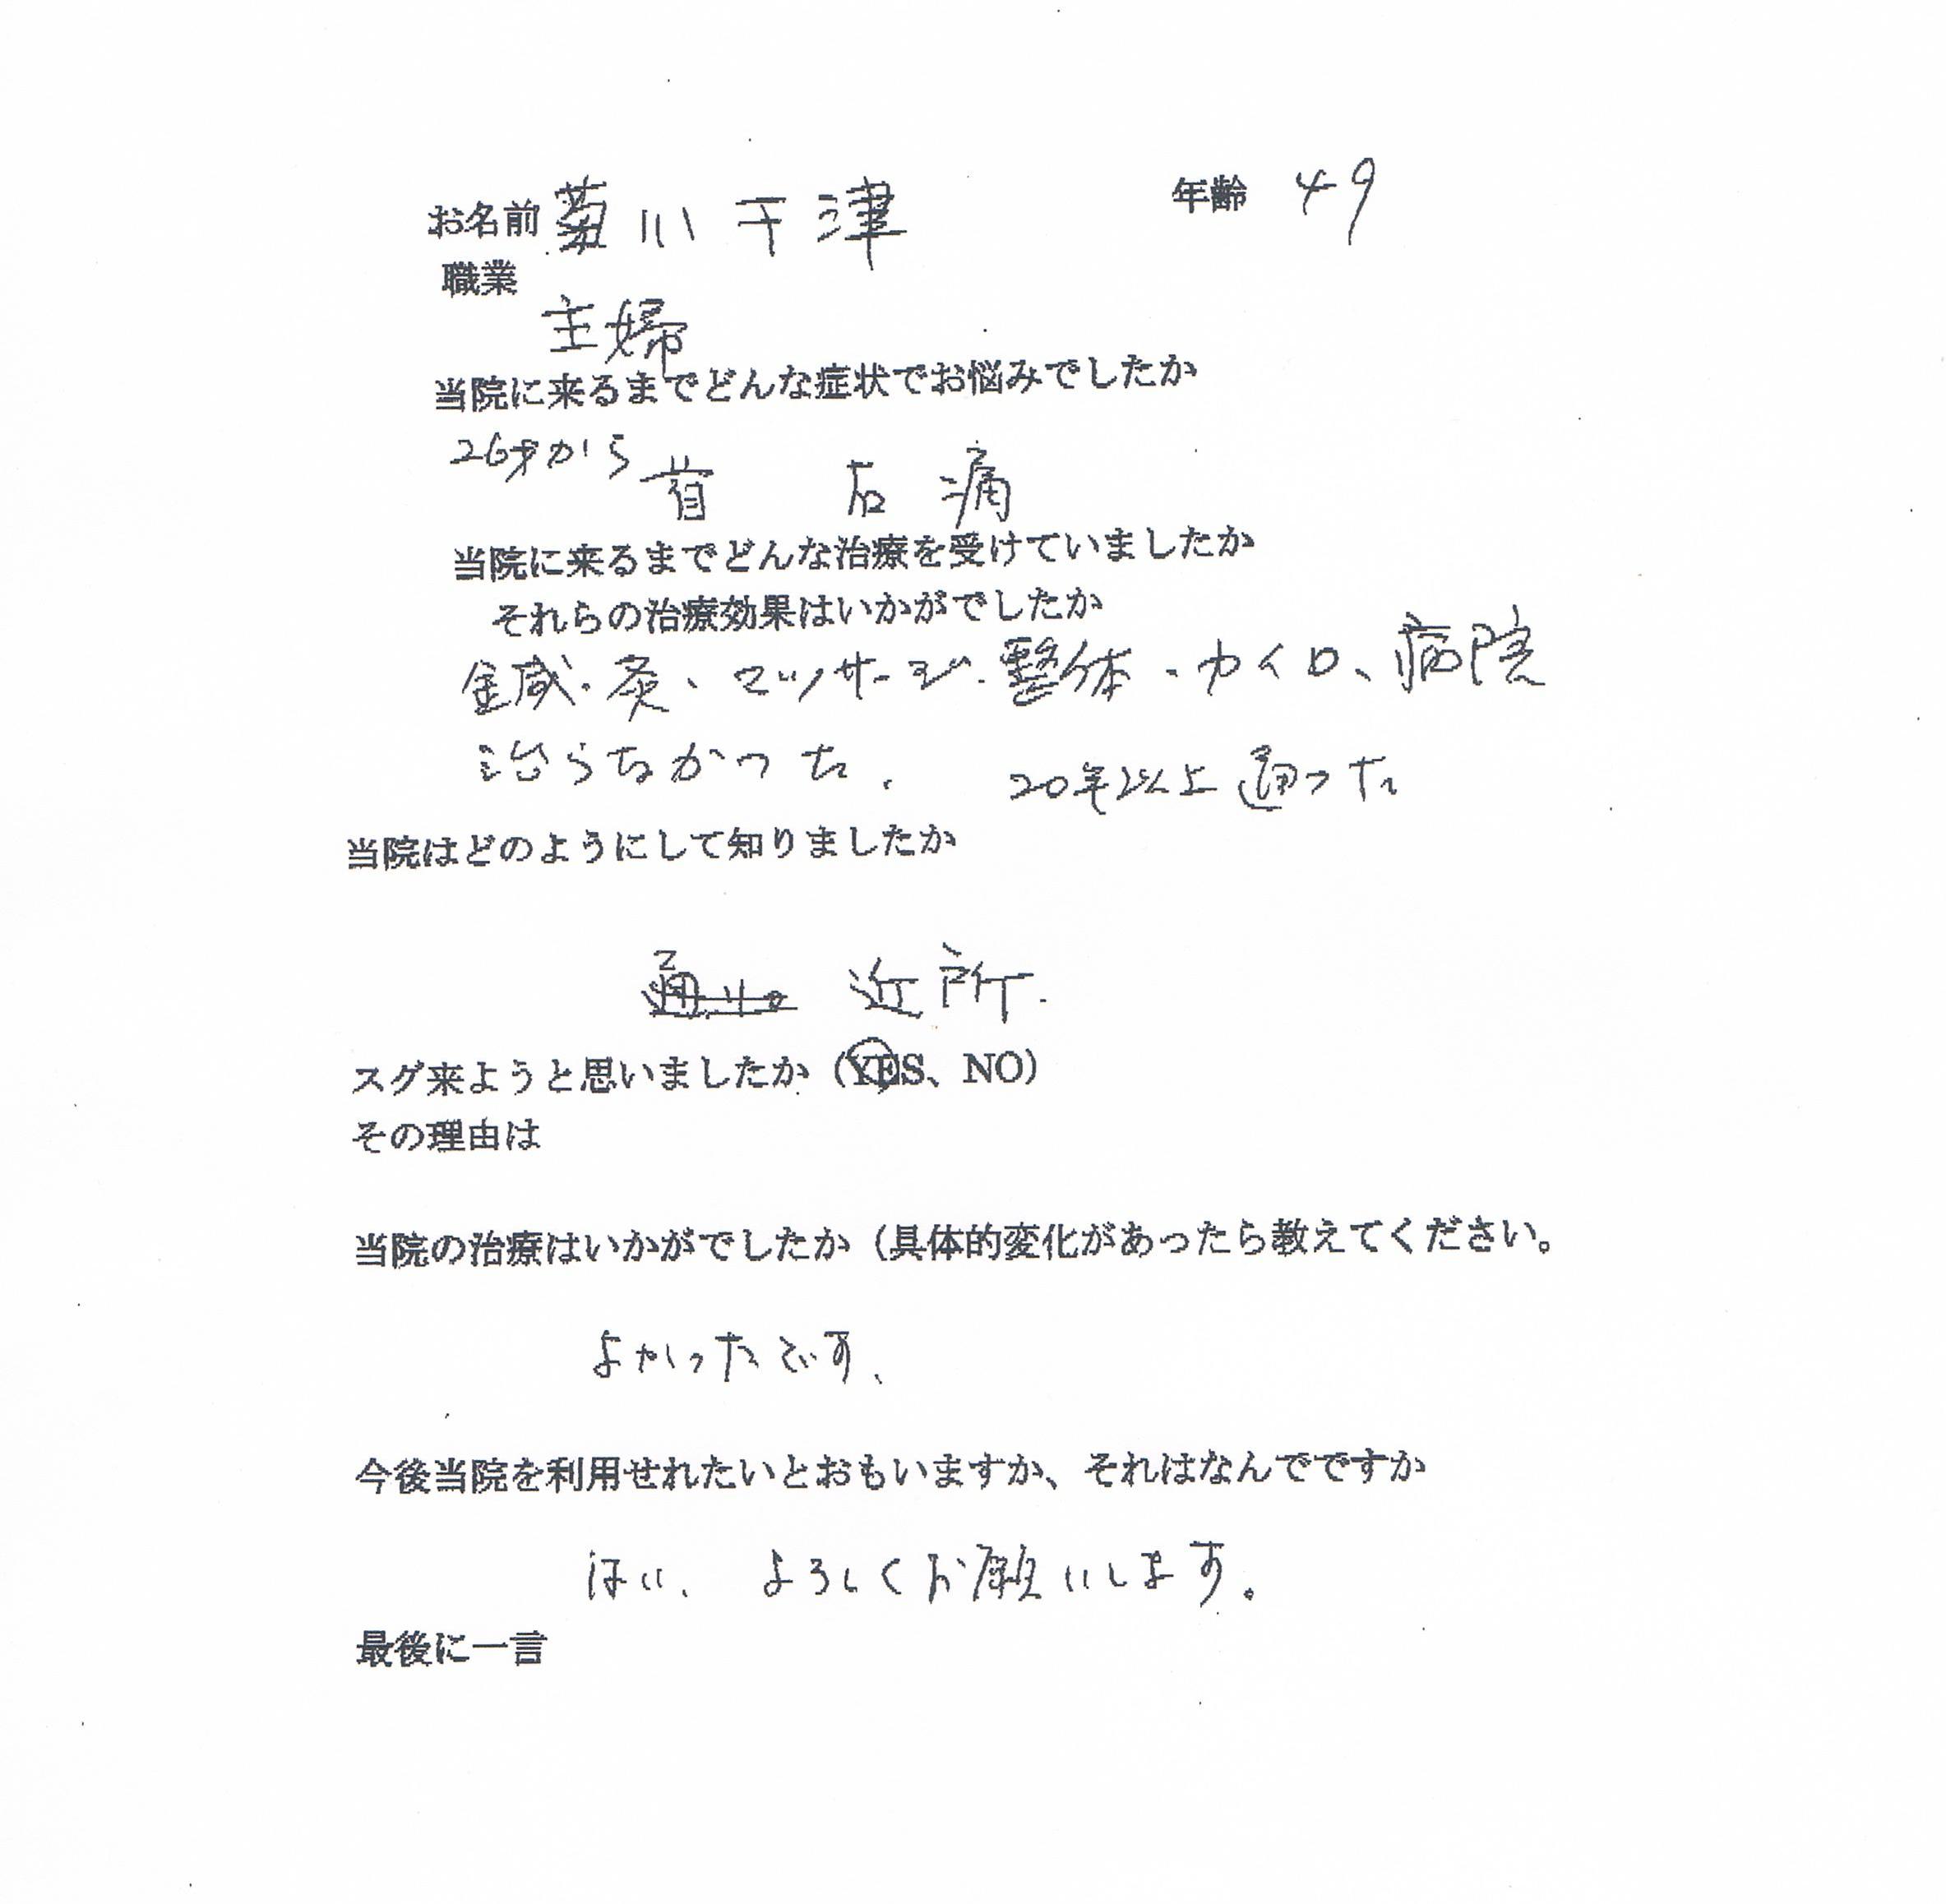 お名前 菊川千津 年齢 49
職業
主婦
当院に来るまでどんな症状でお悩みでしたか
26才から 首 右 痛
当院に来るまでどんな治療を受けていましたか
それらの治療効果はいかがでしたか
鍼・灸、マッサージ・整体・カイロ、病院
治らなかった。 20年以上通った
当院はどのようにして知りましたか
近所.
スグ来ようと思いましたか（YES、NO）
その理由は
当院の治療はいかがでしたか（具体的変化があったら教えてください。
よかったです、
今後当院を利用せれたいとおもいますか、それはなんでですか
はい、よろしくお願いします。
最後に一言